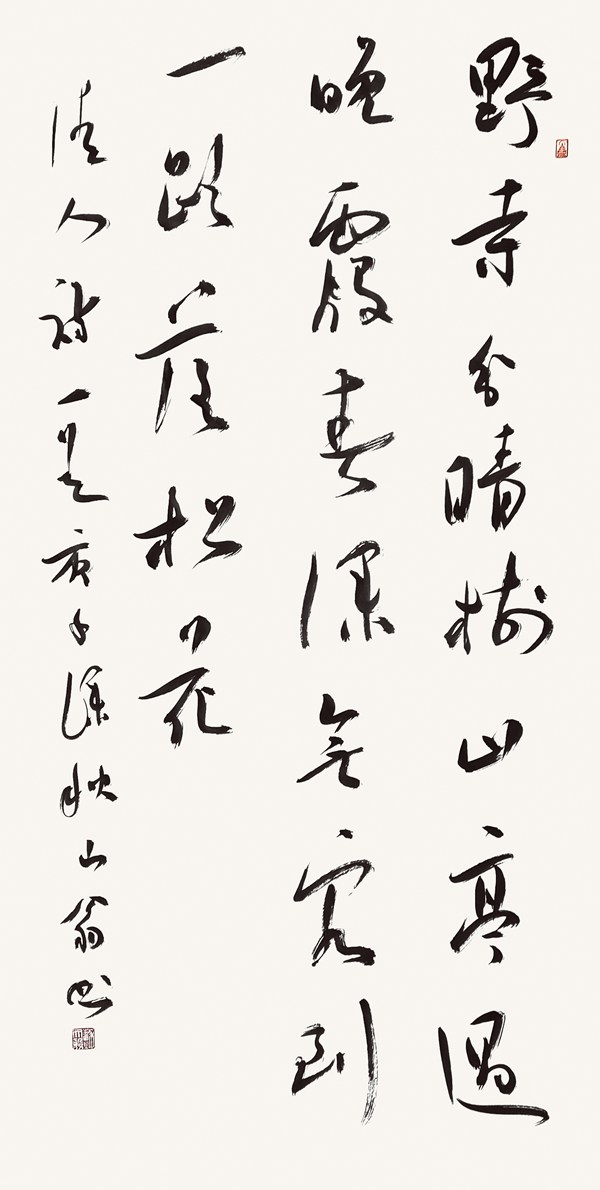 野寺分晴樹山亭過
晚霞春深無客到
一路落松花
清人詩一首庚子深秋山翁书